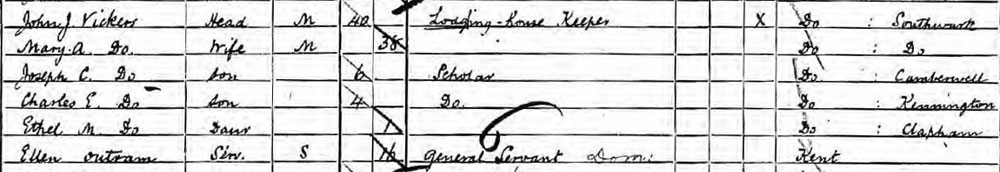 John J. Vickers Head M 40 Lodging-house Keeper X Do : Southwark
Mary A. Do Wife M 38 Do : Do
Joseph C. Do Son 6 Scholar Do : Camberwell
Charles E. Do Son 4 Do. Do : Kennington
Ethel M. Do Daur 1 Do : Clapham
Ellen Outram Serv. S 16 General Servant Dom: Kent
6